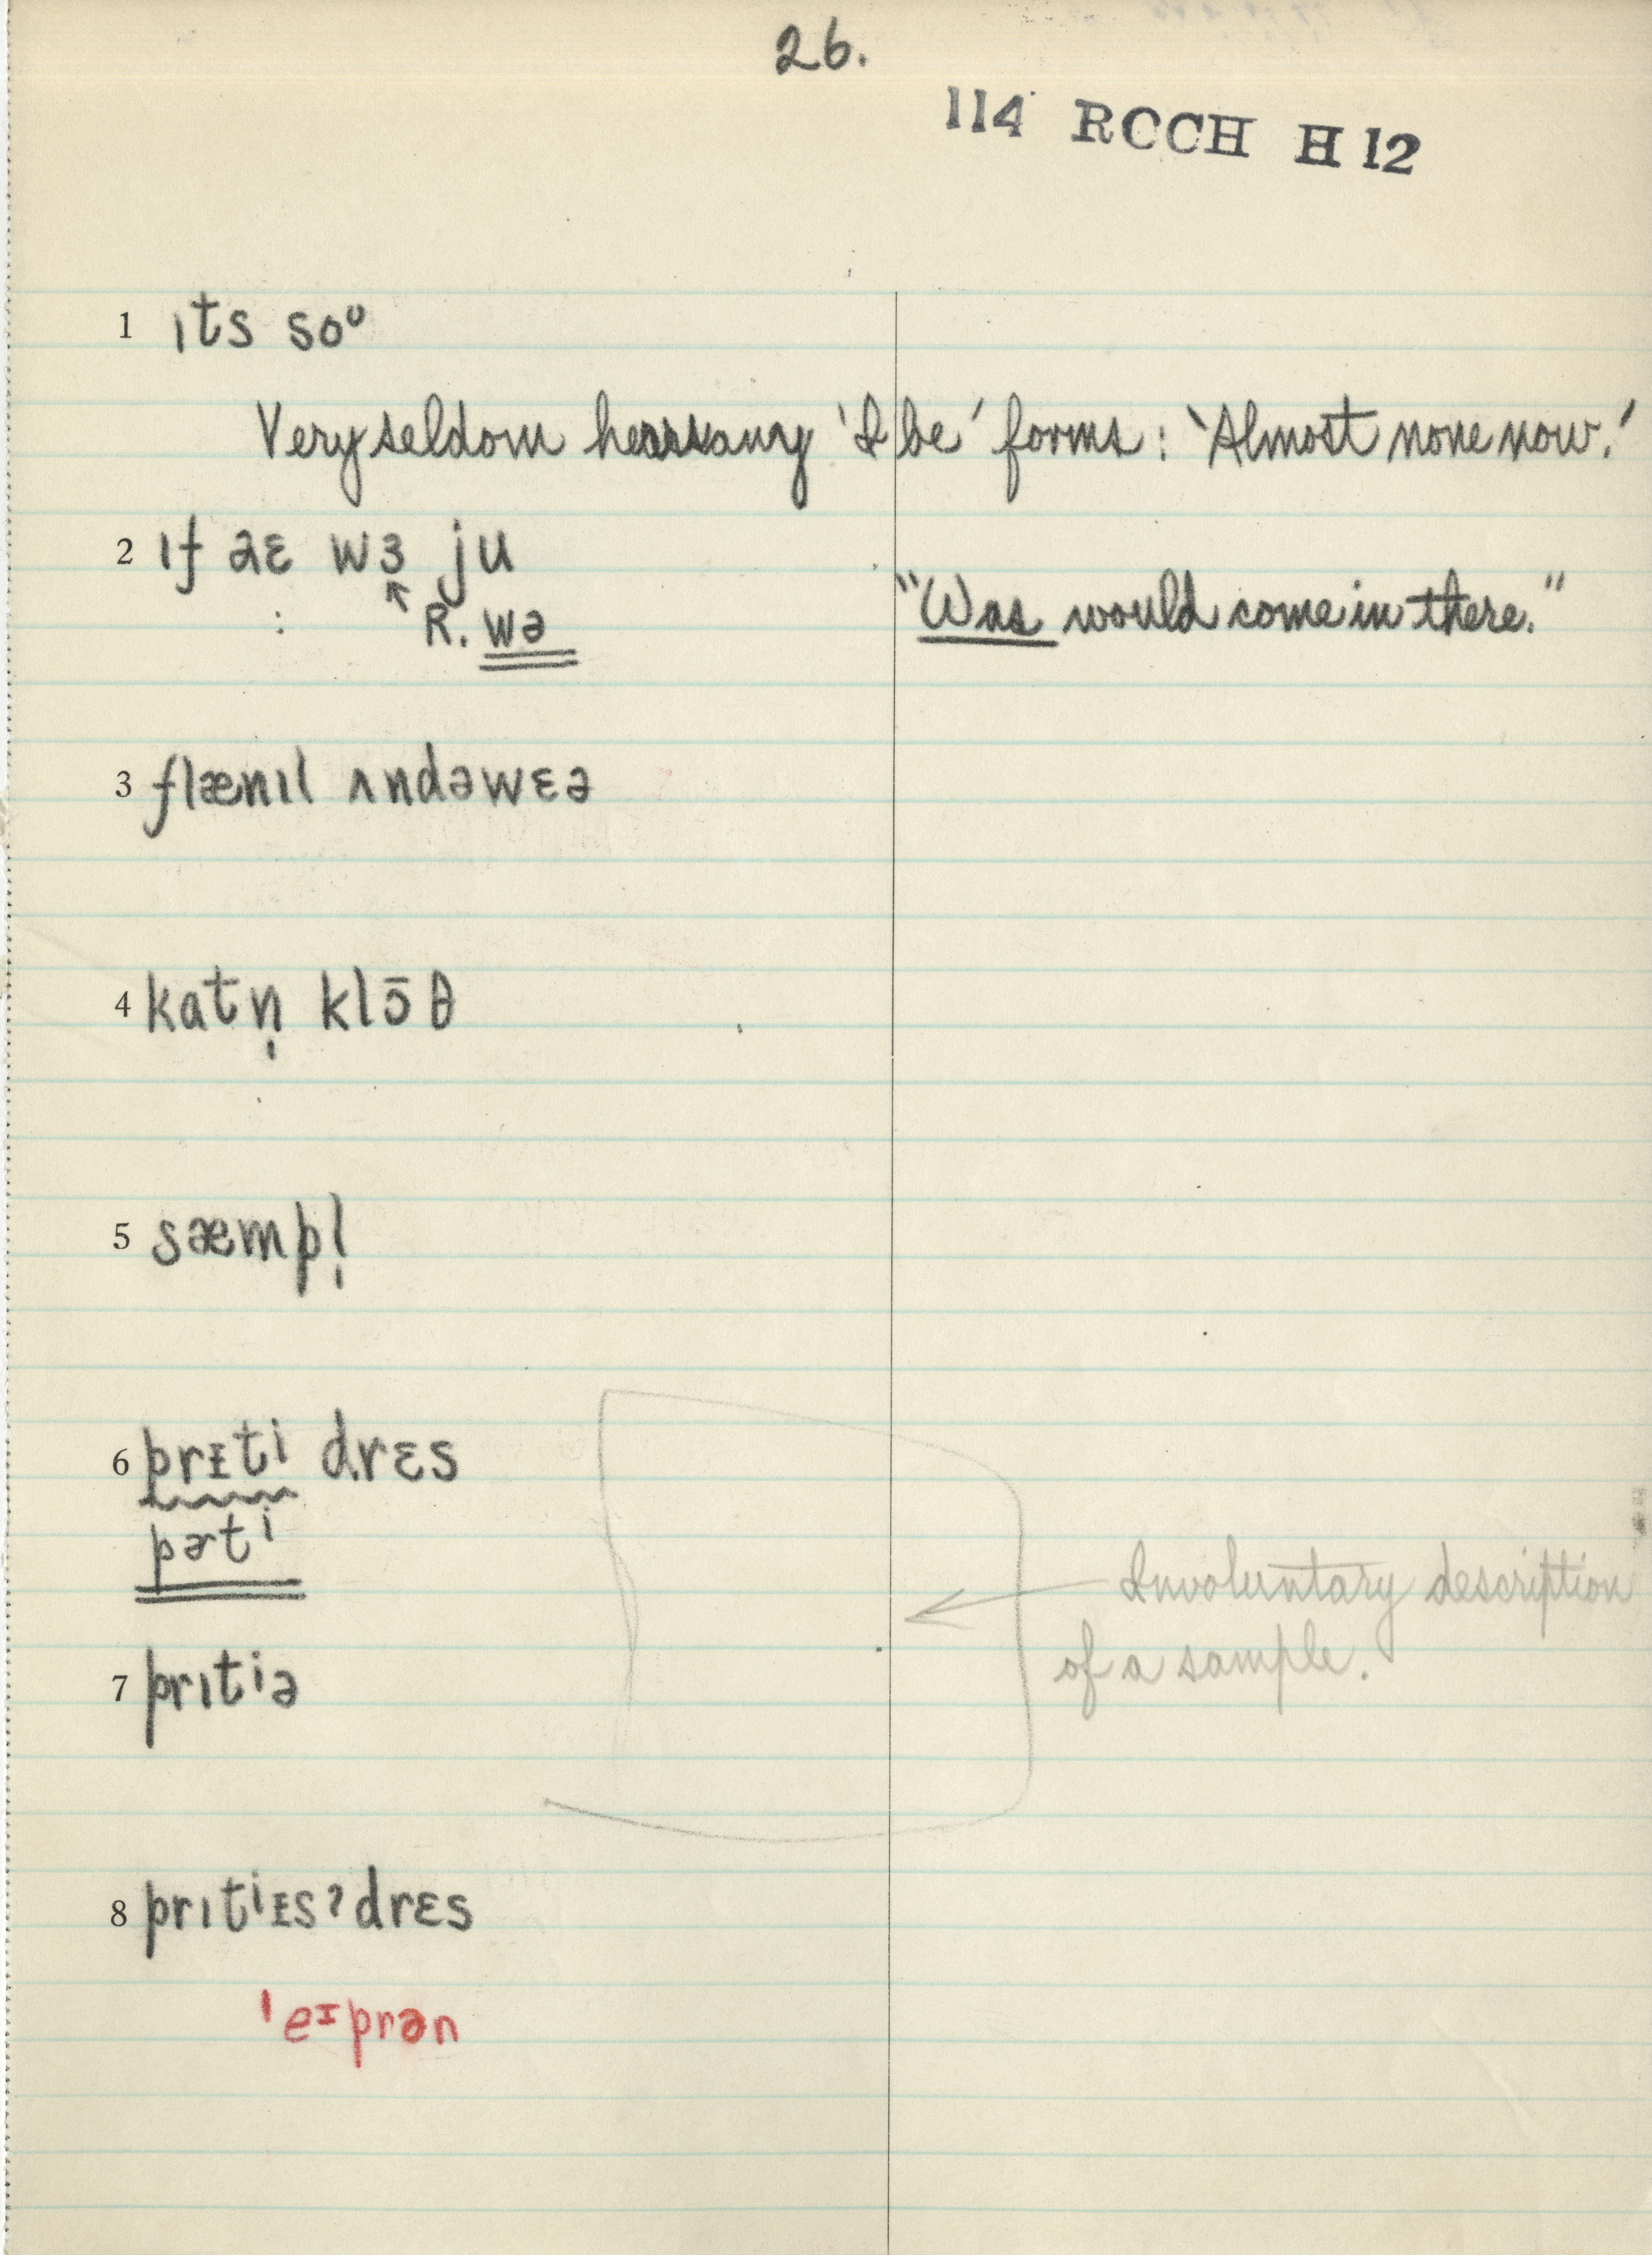 26.
114 RCCH H 12
1 ɪts soᶷ
Very seldom hears any 'I be' forms: 'Almost none now.'
2 ɪf aɛ wɜ ju
R. wə
"Was would come in there."
3 flænɪl ʌndəwɛə
4 katn̩ klɔ̄θ
5 sæmpl̩
6 prɪti drɛs
pɚti
Involuntary description
of a sample.
7 prɪtiə
8 prɪtiɪs ? drɛs
ˈeɪprən